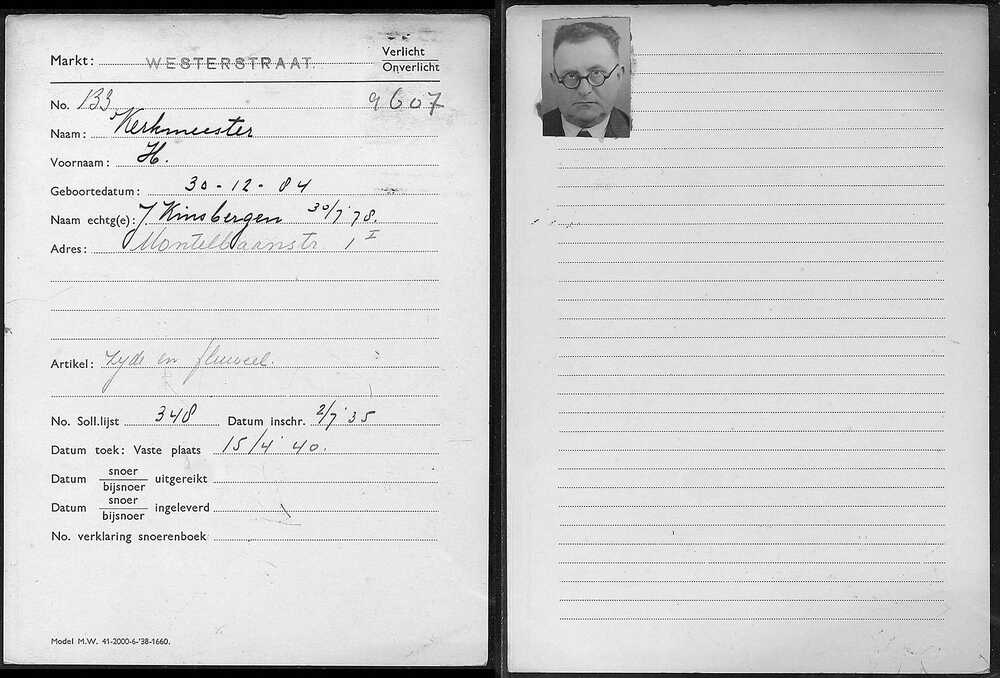 Markt: WESTERSTRAAT.
Verlicht
Onverlicht
No. 133 9607
Naam: Kerkmeester
Voornaam: H.
Geboortedatum: 30-12-84
Naam echtg(e): J Kinsbergen 30/7'78.
Adres: Montelbaanstr. 1 I
Artikel: Zyde en fluweel.
No. Soll.lijst 348 Datum inschr. 2/7'35
Datum toek: Vaste plaats 15/4'40.
Datum snoer/bijsnoer uitgereikt
Datum snoer/bijsnoer ingeleverd
No. verklaring snoerenboek
Model M.W. 41-2000-6-'38-1660.